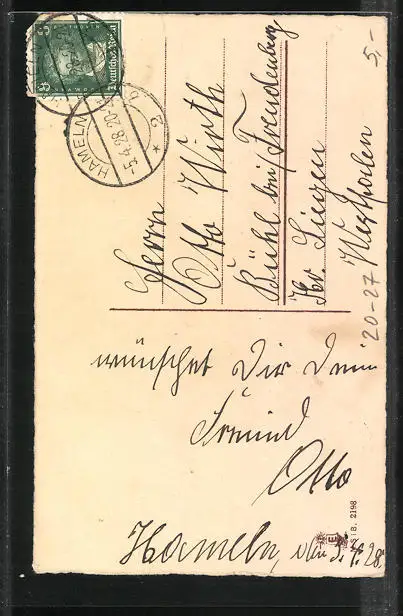 Herrn
Otto Wirth
Bühl bei/Freudenberg
Kr. Siegen
Westfalen
wünschet Dir Dein
Freund
Otto
Hameln, den 5. 4. 28.
HAMELN
-5.4.28.20-
* 2 b
Deutsches Reich
8
8
5,-
20-27
E
2198